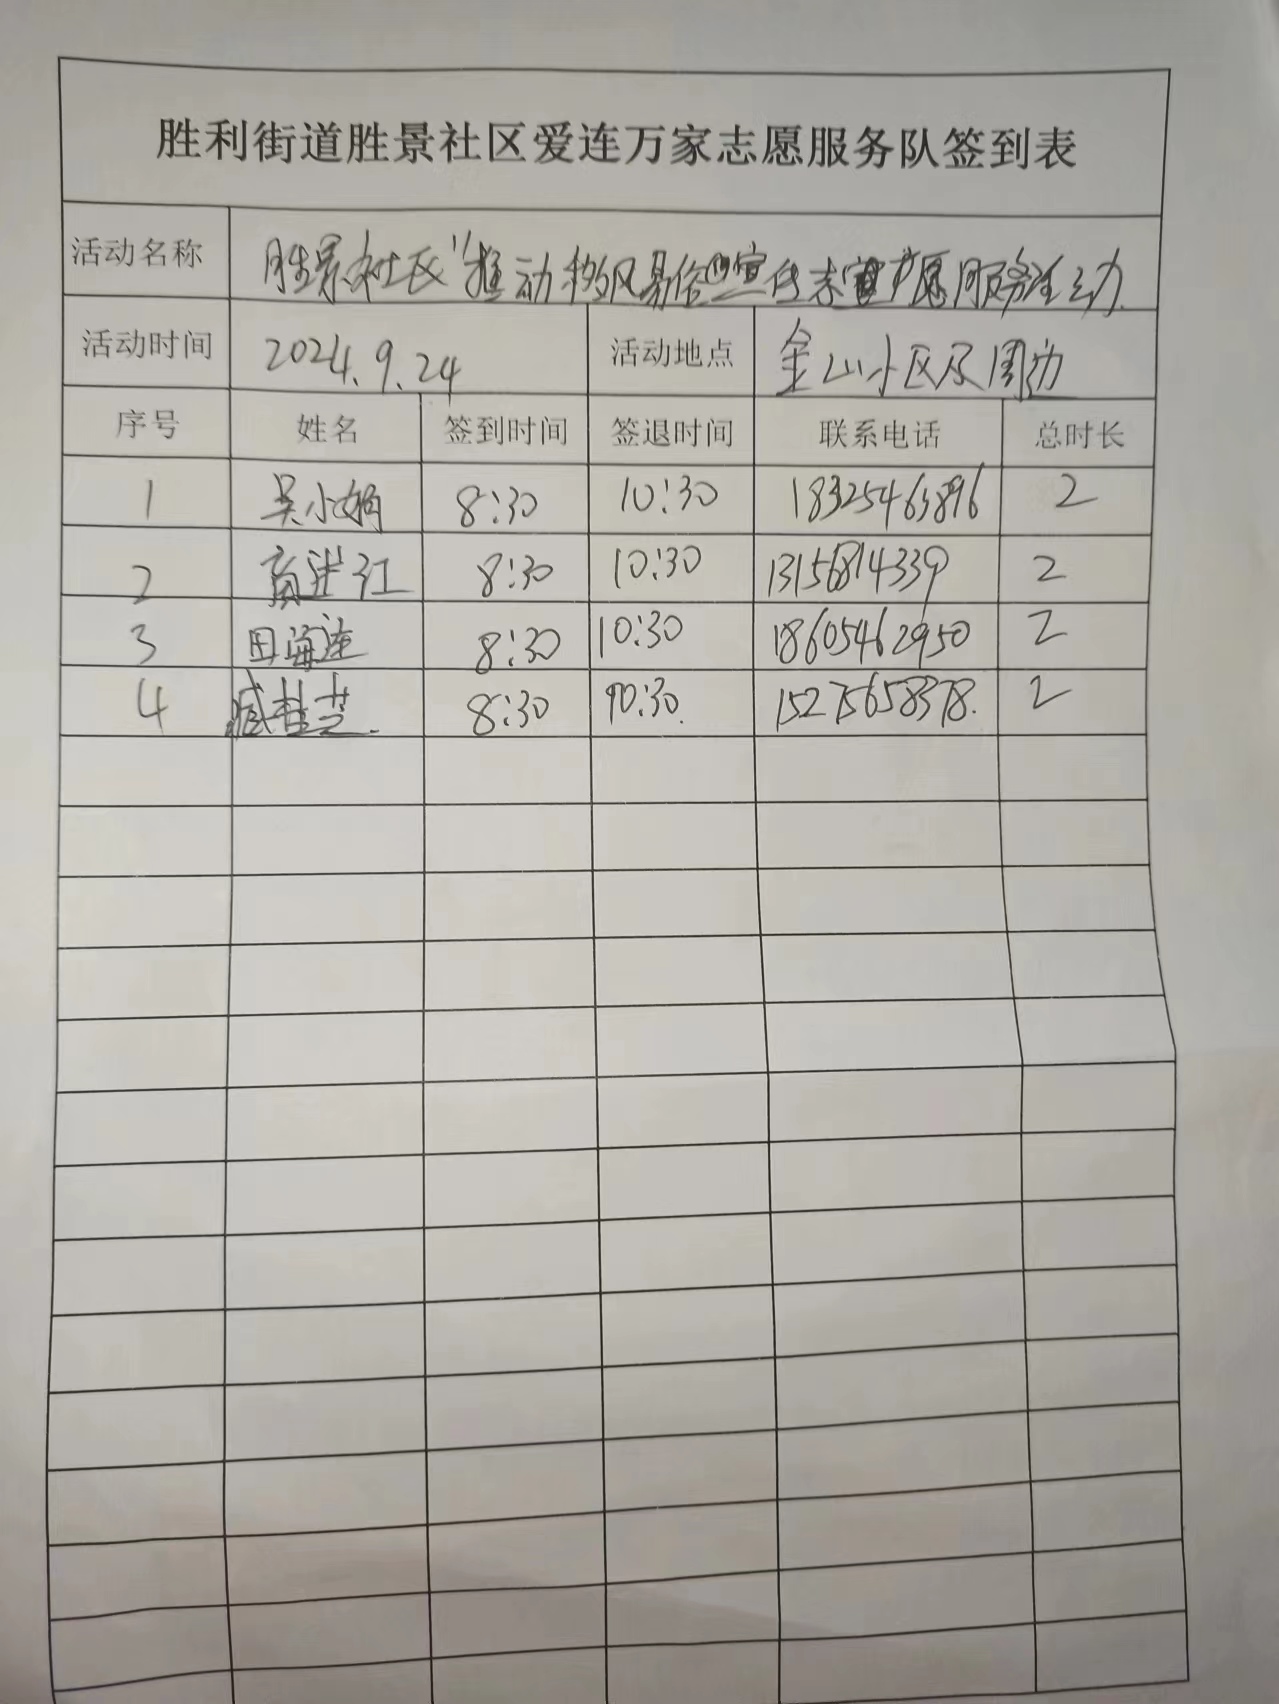 胜利街道胜景社区爱连万家志愿服务队签到表
活动名称 胜景社区"推动移风易俗 宣传志愿服务活动
活动时间 2024.9.24 活动地点 金山小区及周边
序号 姓名 签到时间 签退时间 联系电话 总时长
1 吴小娟 8:30 10:30 18325463896 2
2 8:30 10:30 13156814339 2
3 田海莲 8:30 10:30 18605462950 2
4 臧桂芝. 8:30 10:30. 15275658378. 2